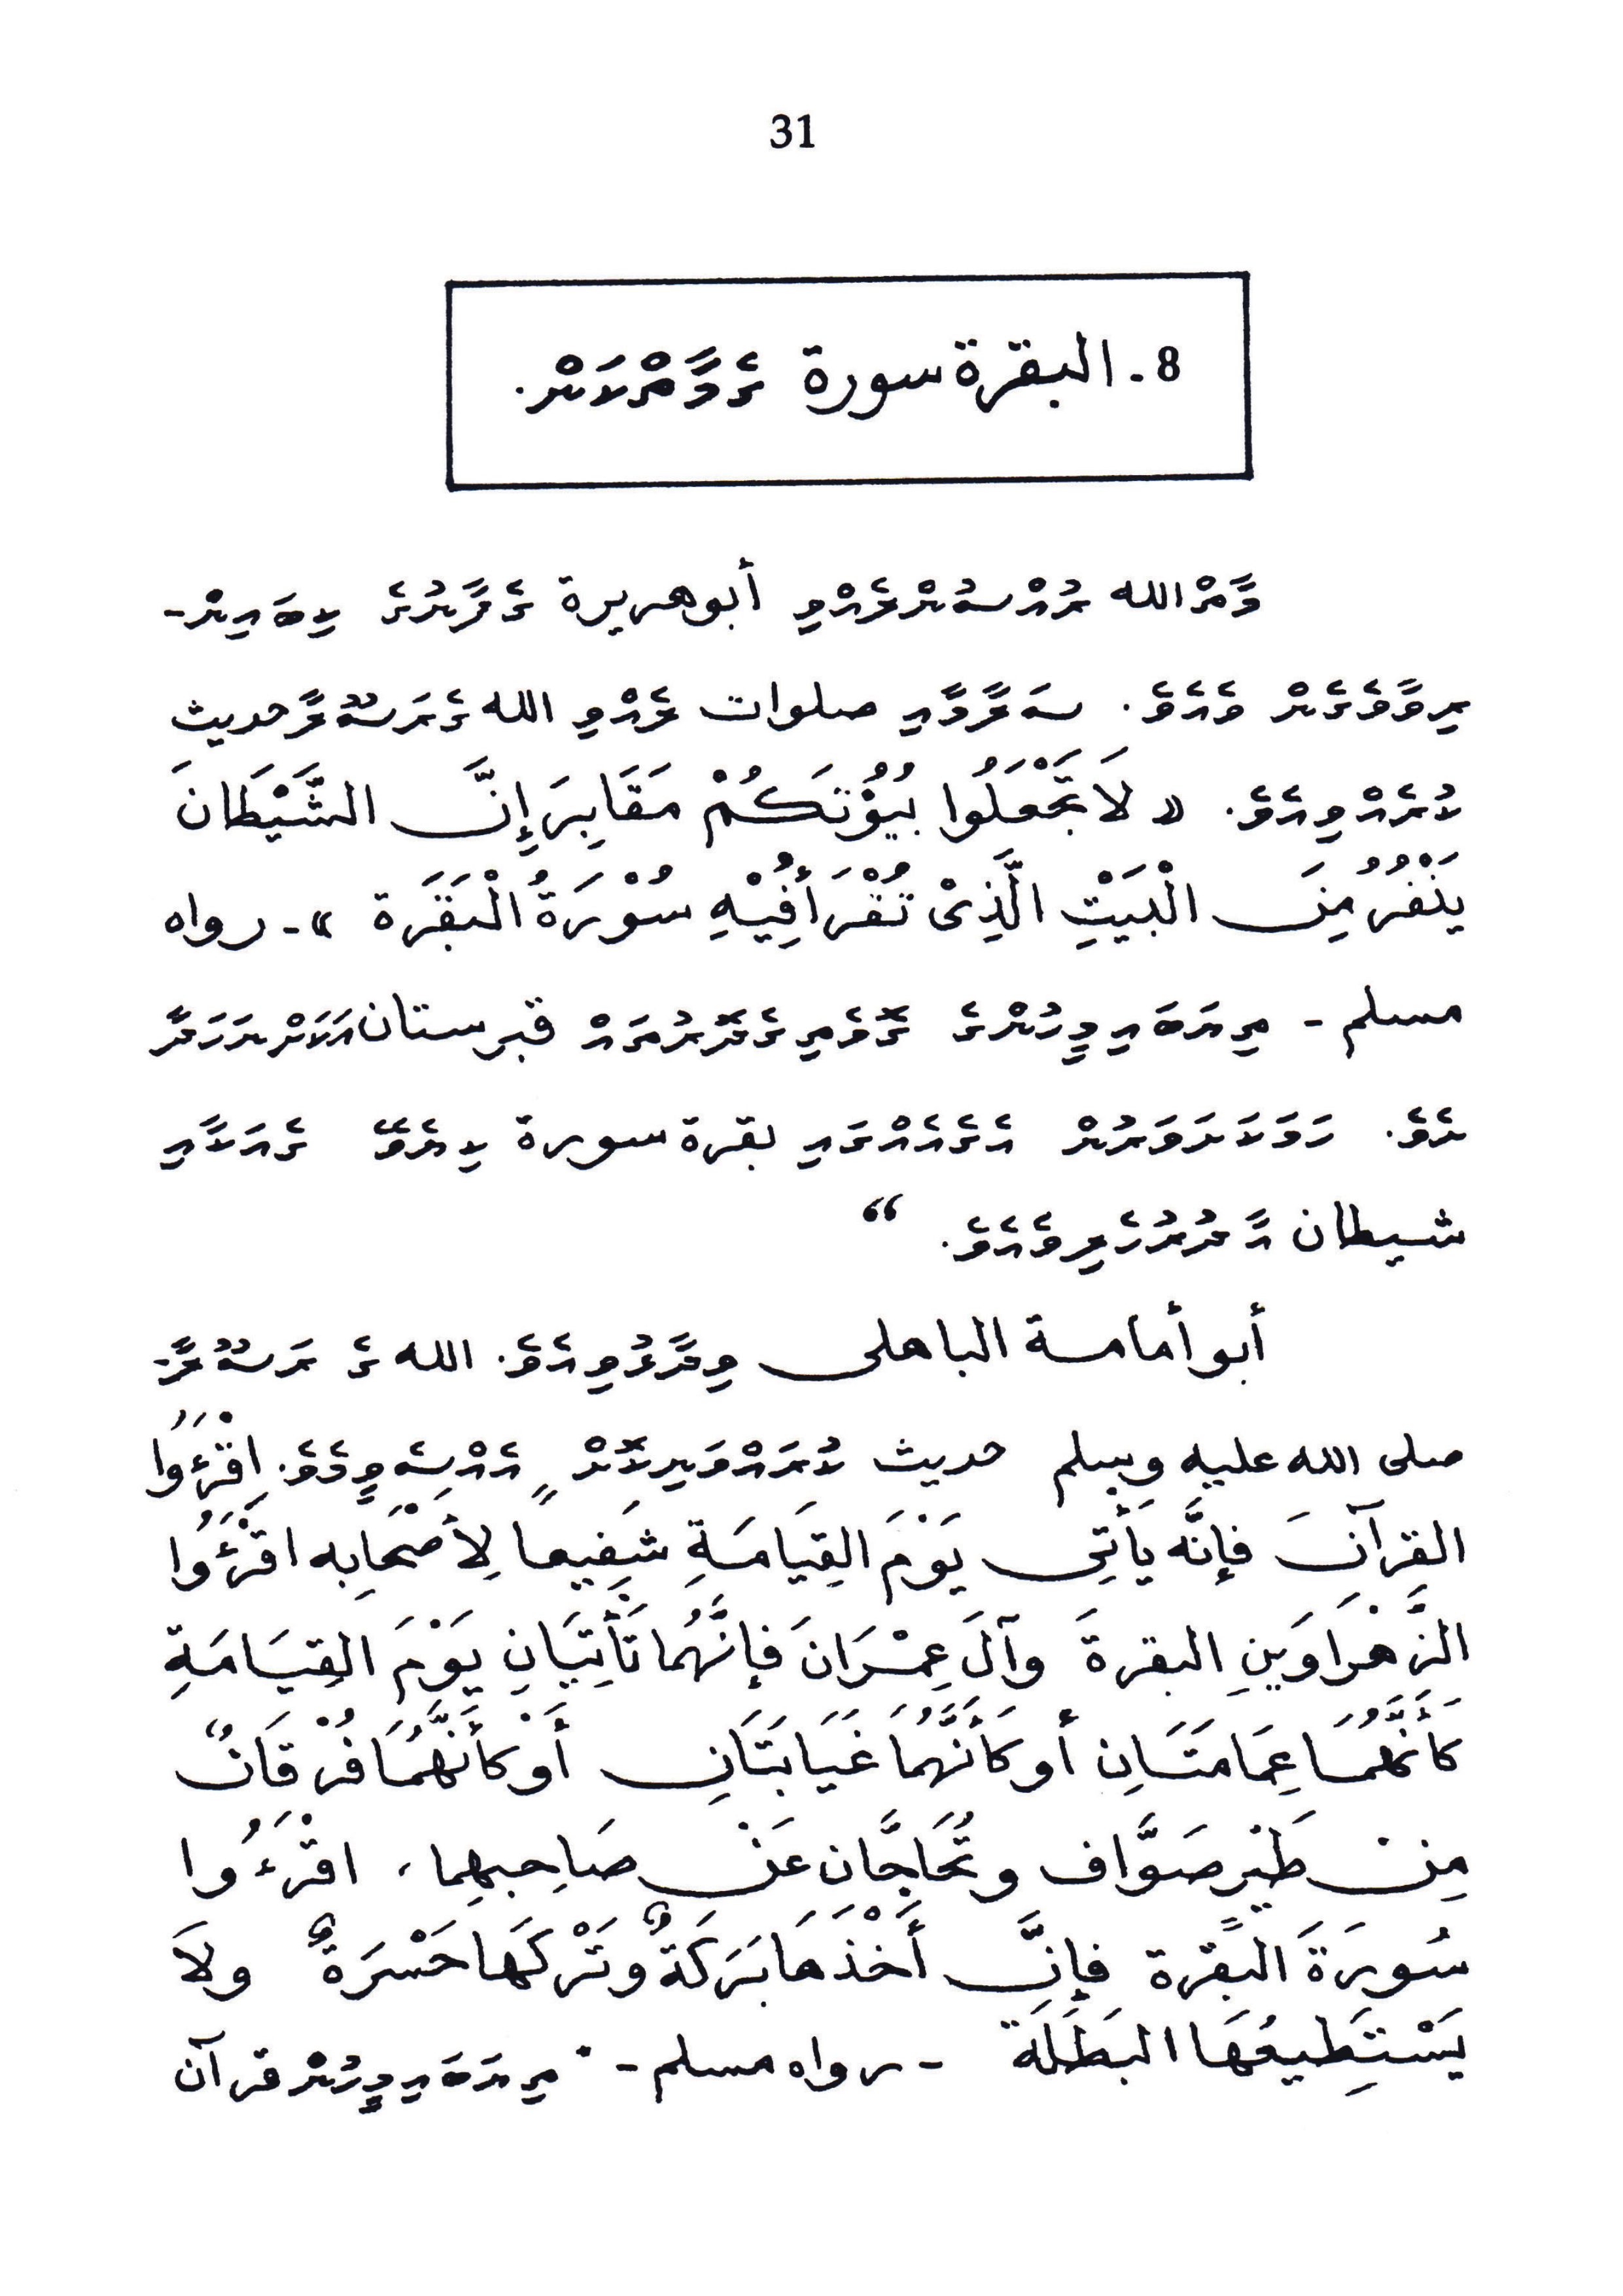 31
8- البقرة سورة ގެ މާތްކަން.
މާތް الله ރުއްސުންލެއްވި أبوهريرة ގެފާނުގެ ކިބައިން-
ރިވާވެގެން ވެއެވެ. ސަލާމާއި صلوات ލެއްވި الله ގެ ރަސޫލާ حديث
ކުރެއްވިއެވެ. « لاَ تَجْعَلُوا بُيُوْتَكُمْ مَقَابِرَ إِنَّ الشَّيْطَانَ
يَنْفُرُ مِنَ الْبَيْتِ الَّذِىْ تُقْرَأُ فِيْهِ سُوْرَةُ الْبَقَرَة »- رواه
مسلم - ތިޔަބައިމީހުންގެ ގޮވެތި ގެދޮރުތައް قبرستان އަކަށްނަހަދާ
ށެވެ. ހަމަކަށަވަރުން އެގެއެއްގައި بقرة سورة ކިޔެވޭ ގެއަކާއި
شيطان އާ ދުރުހެލިވެއެވެ. “
أبو أمامة الباهلى ވިދާޅުވިއެވެ. الله ގެ ރަސޫލާ-
صلى الله عليه وسلم حديث ކުރައްވަނިކޮށް އެއްސެވީމެވެ. اِقْرَءُوا
القرآنَ فإِنَّه يَأْتِى يَوْمَ القِيَامَةِ شَفِيعاً لِأَصْحَابِه اقْرَءُوا
الزَّهْرَاوَينِ البقرةَ وآلَ عِمْرَانَ فإِنَّهُمَا تَأْتِيَانِ يَوْمَ القِيَامَةِ
كَأَنَّهُمَا غِمَامَتَانِ أو كَأَنَّهُمَا غَيَابَتَانِ أَوْ كأَنَّهُمَا فُرْقَانٌ
مِنْ طَيْرٍ صَوَّاف وتُحَاجَّان عَنْ صَاحِبهِما، اقْرَءُوا
سُورَةَ البقرة فإِنَّ أَخْذَهَا بَرَكَةٌ وتَرْكَهَا حَسْرَةٌ ولاَ
يَسْتَطِيعُهَا البَطَلَة - رواه مسلم - ތިޔަބައިމީހުން قرآن